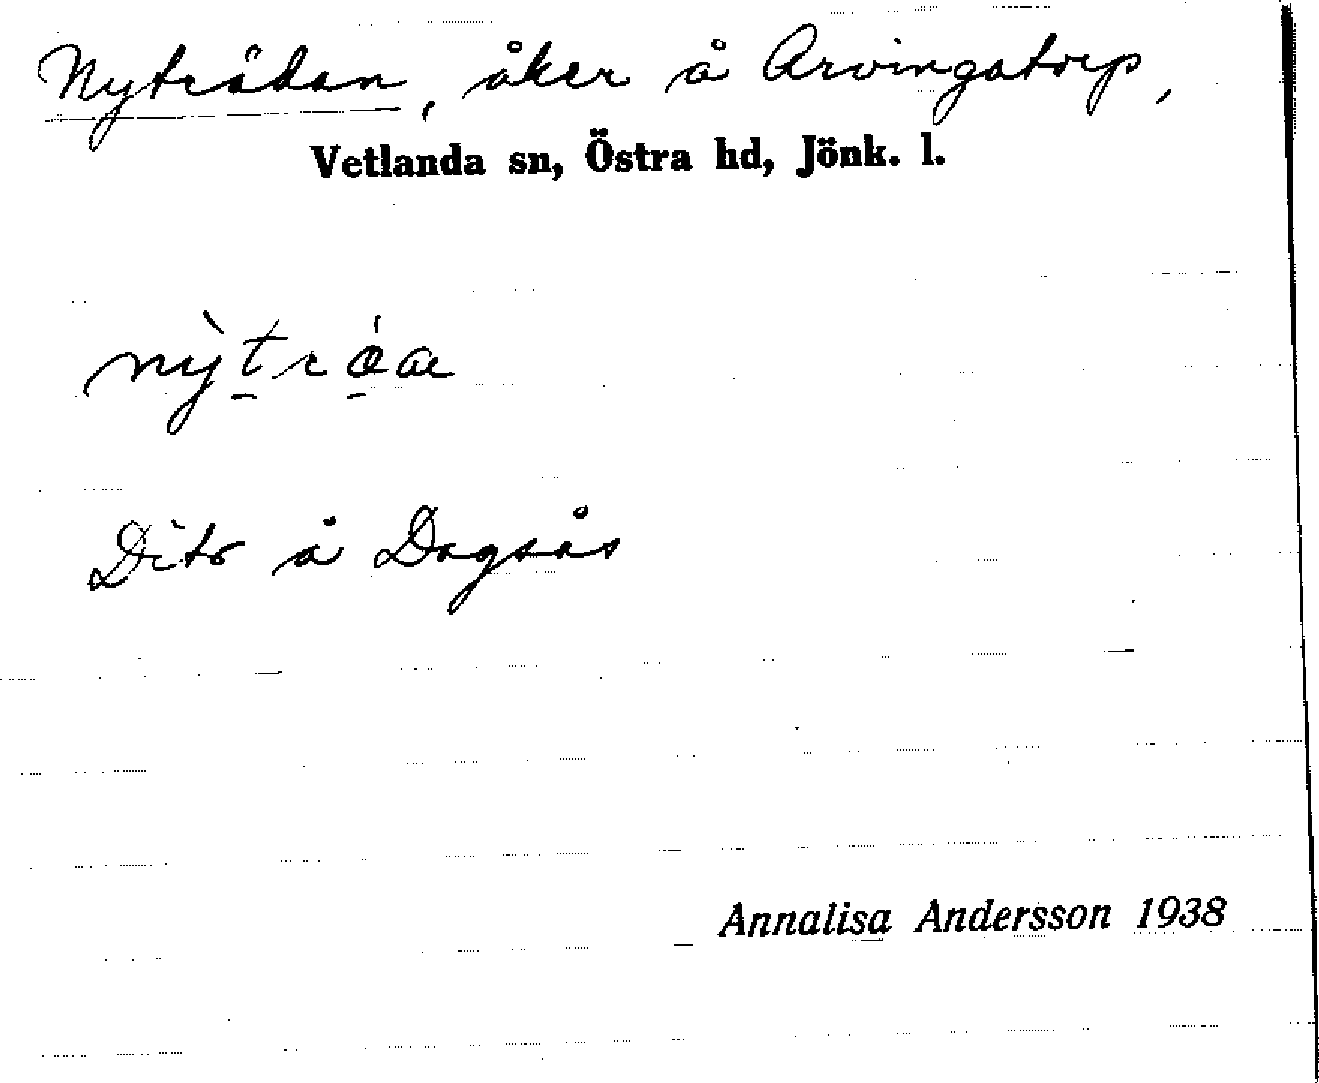 Nyträdan, åker å Arvingatorp,
Vetlanda sn, Östra hd, Jönk. l.
Dito å Dagsås
Annalisa Andersson 1938